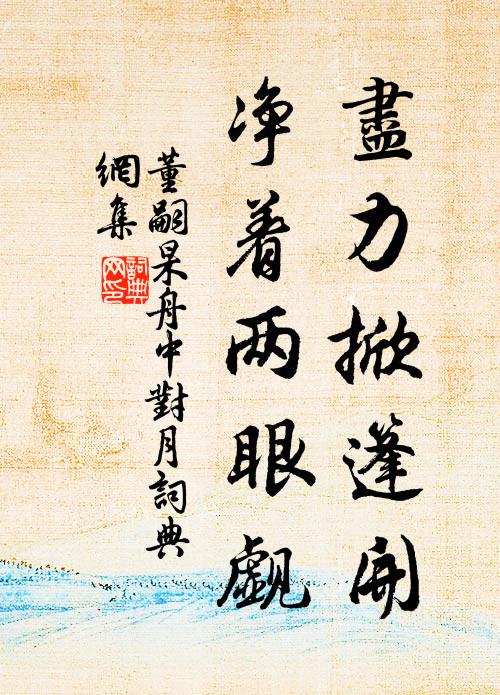 盡力掀篷開
净着两眼覰
董嗣杲舟中對月詞典
網集
詞典网印